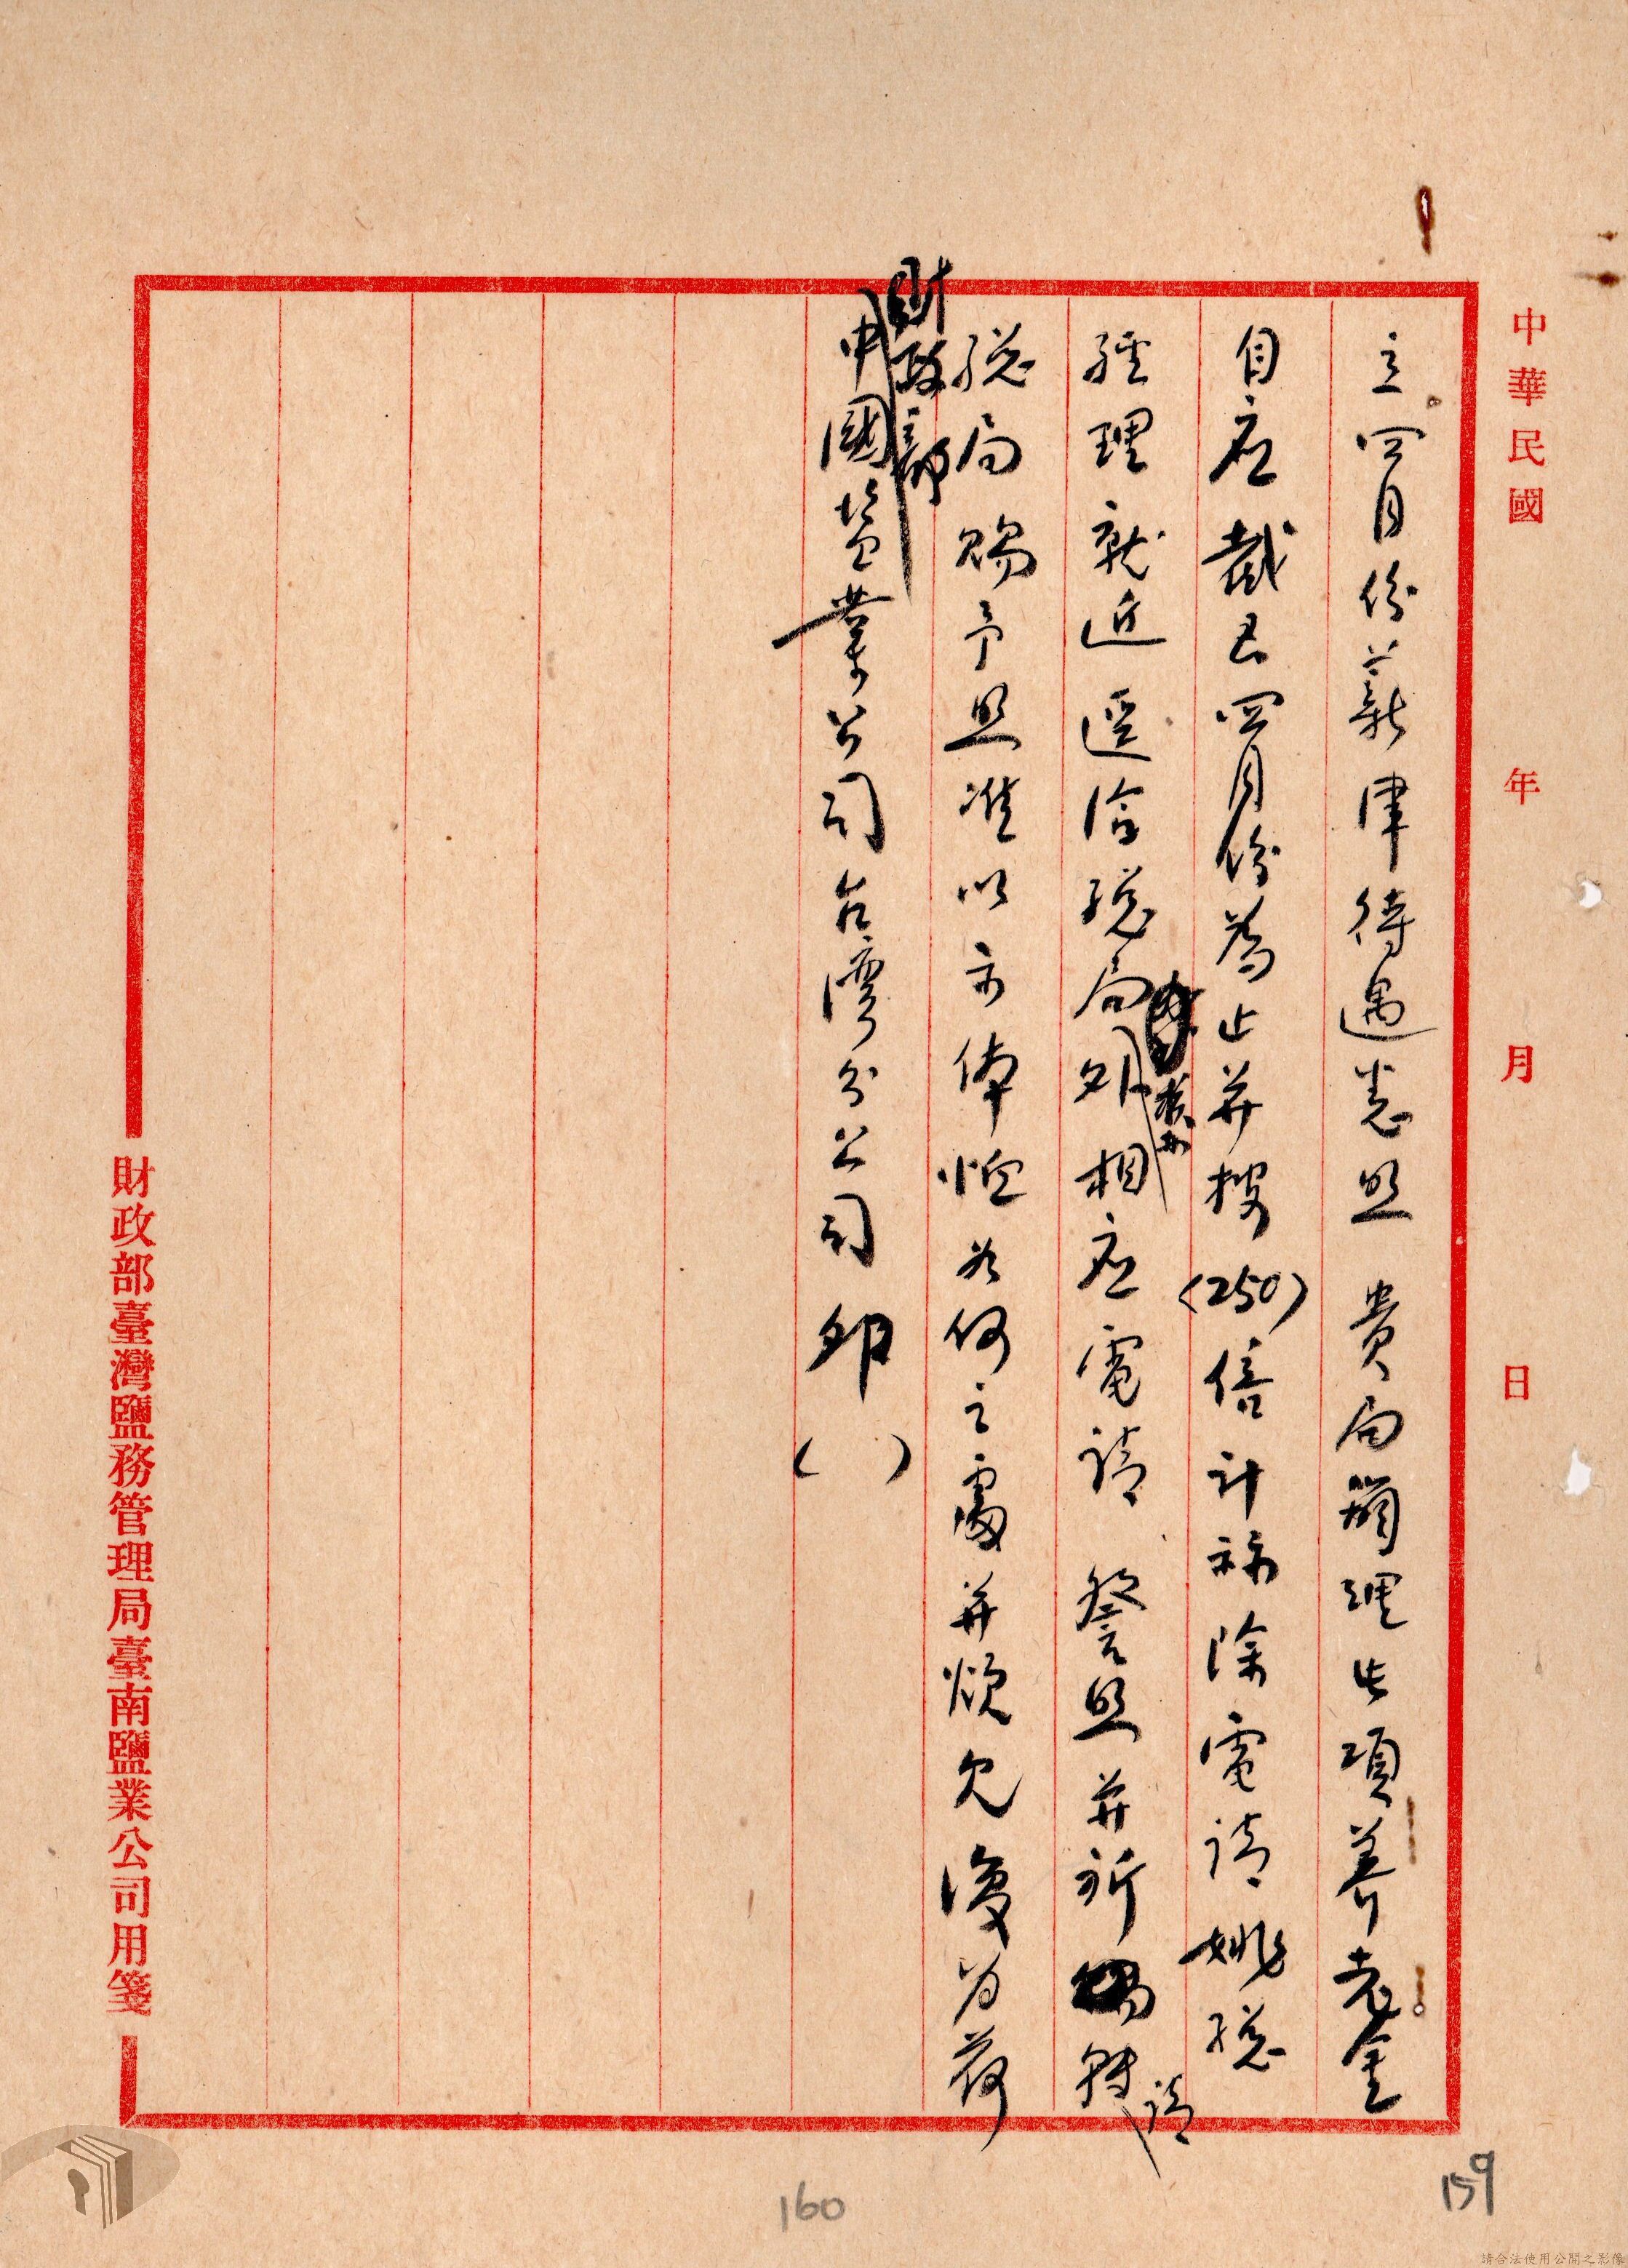 中華民國 年 月 日
立四月份薪津待遇悉照 貴局辦理此項養老金
自應截至四月份為止并按(250)倍計祘除電請姚總
經理就近逕洽總局外相應電請 詧照并祈轉請
總局賜予照准以示体恤為何之處并煩見復为荷
財政部
中國盐業公司台灣分公司 印( )
財政部臺灣鹽務管理局臺南鹽業公司用箋
159
160
請合法使用公開之影像